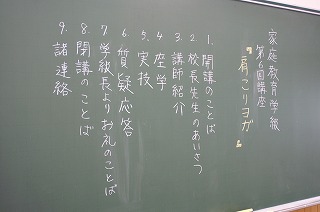 家庭教育学級
第6回講座
『肩こりヨガ』
1. 開講のことば
2. 校長先生のあいさつ
3. 講師紹介
4. 座学
5. 実技
6. 質疑応答
7. 学級長よりお礼のことば
8. 閉講のことば
9. 諸連絡